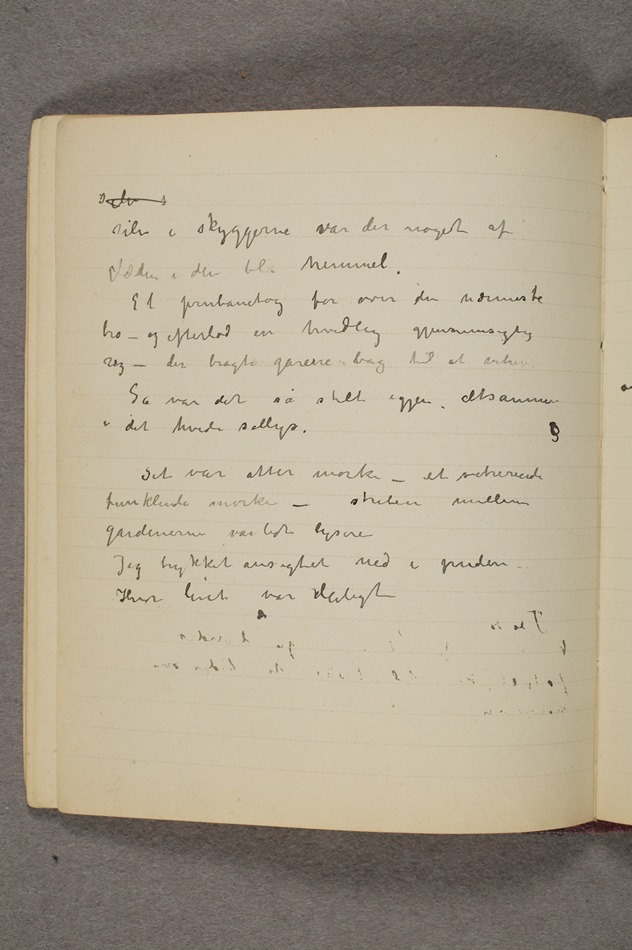 selv i skyggerne var der noget af
glæden i den blå himmel.
Et jernbanetog for over den nærmeste
bro – og efterlod en hvidlig gjennemsigtig
røg – der bragte gårene bag til at vibrere
Så var det så stille igjen. altsammen
i det hvide sollys.
Det var atter mørke – et vibrerende
funklende mørke – striben mellem
gardinerne var lidt lysere
Jeg trykket ansigtet ned i puden –
Hvor livet var deiligt